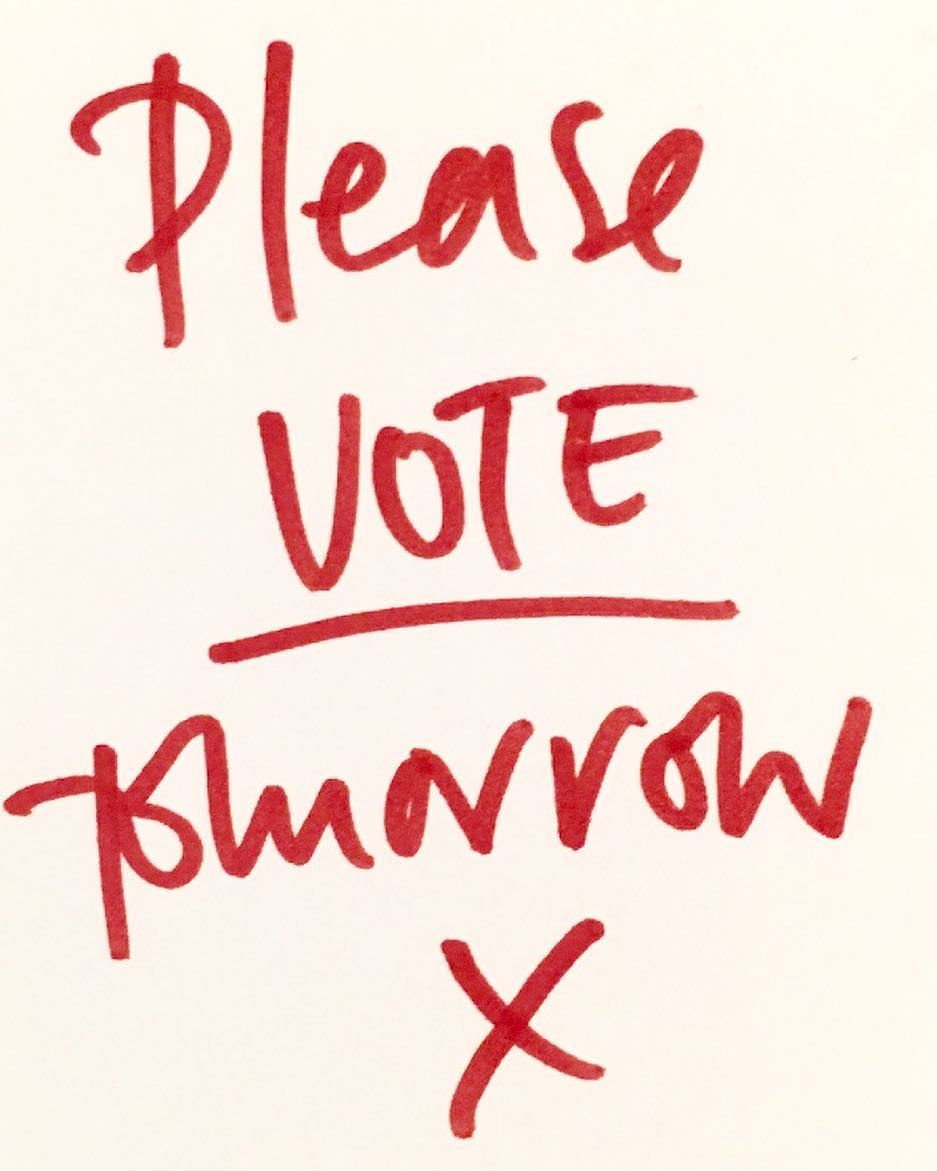 Please
VOTE
tomorrow
X